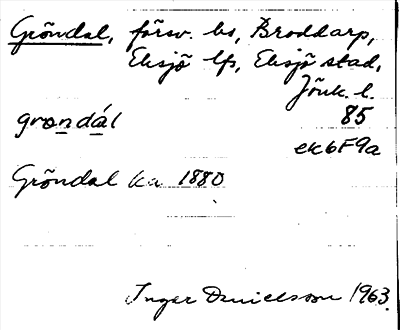 Gröndal, försv. bs, Broddarp,
Eksjö lfs, Eksjö stad,
Jönk. l.
grøndál 85
ek6F9a
Gröndal ka 1880
Inger Danielsson 1963.